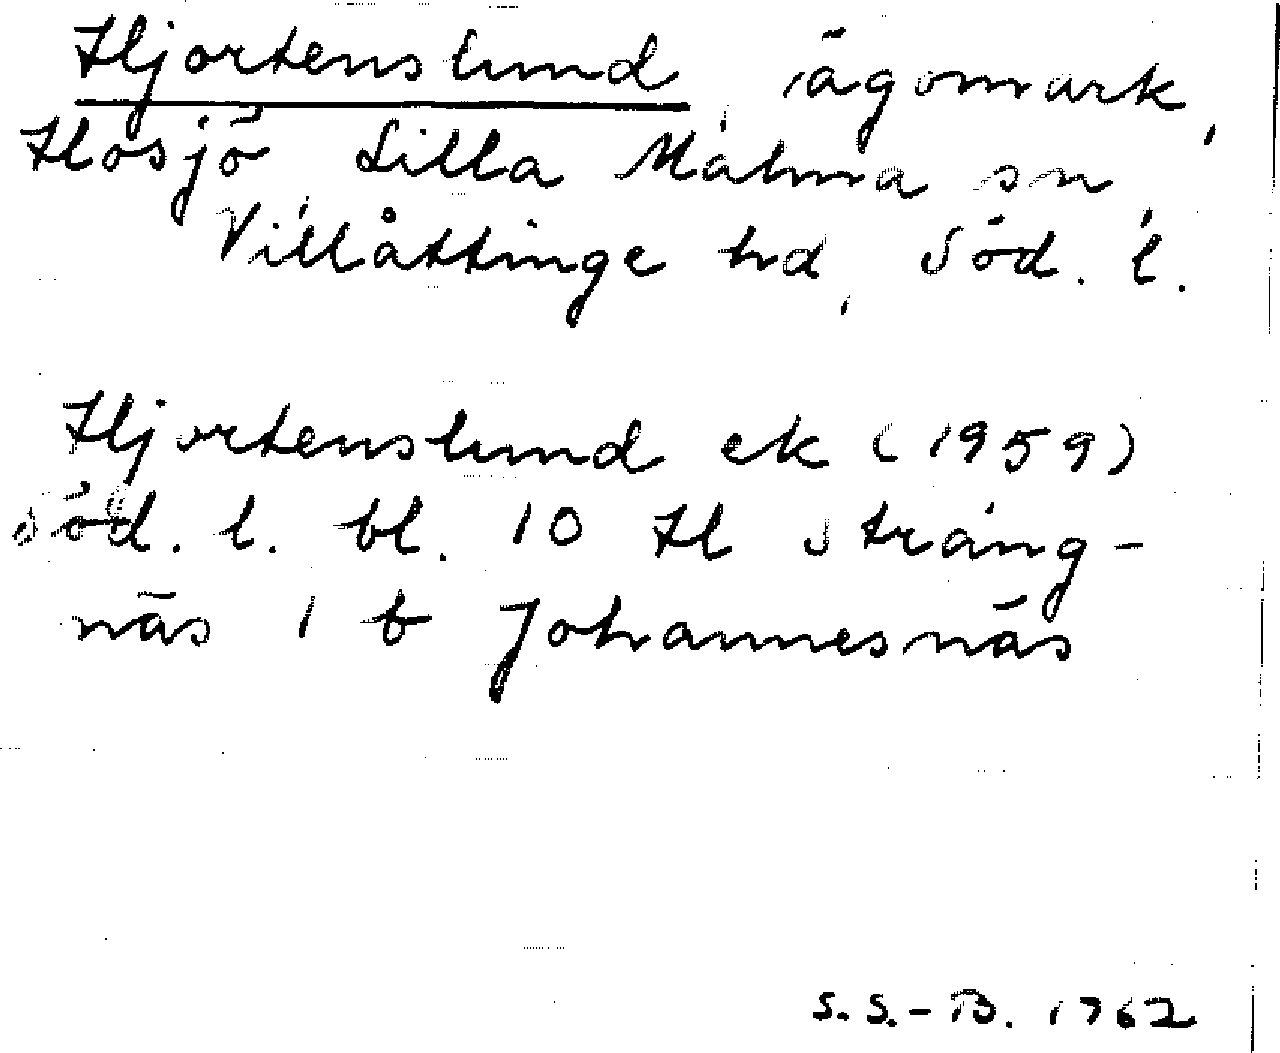 Hjortenslund, ägomark,
Hosjö, Lilla Malma sn,
Villåttinge hd, Söd. l.
Hjortenslund ek (1959)
Söd. l. bl. 10 Hl Sträng-
näs 1 b Johannesnäs
S.S.-B. 1962